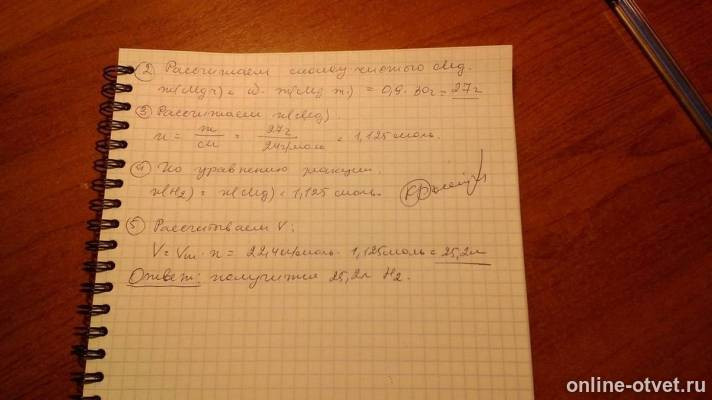 2 Рассчитаем массу чистого Mg.
m(Mg ч) = ω · m(Mg т.) = 0,9 · 30г = 27г
3 Рассчитаем n(Mg)
n = m/M = 27г/24г/моль = 1,125 моль.
4 По уравнению реакции,
n(H₂) = n(Mg) = 1,125 моль.
5 Рассчитываем V:
V = Vm · n = 22,4 л/моль · 1,125 моль = 25,2л
Ответ: получится 25,2л H₂.
online-otvet.ru